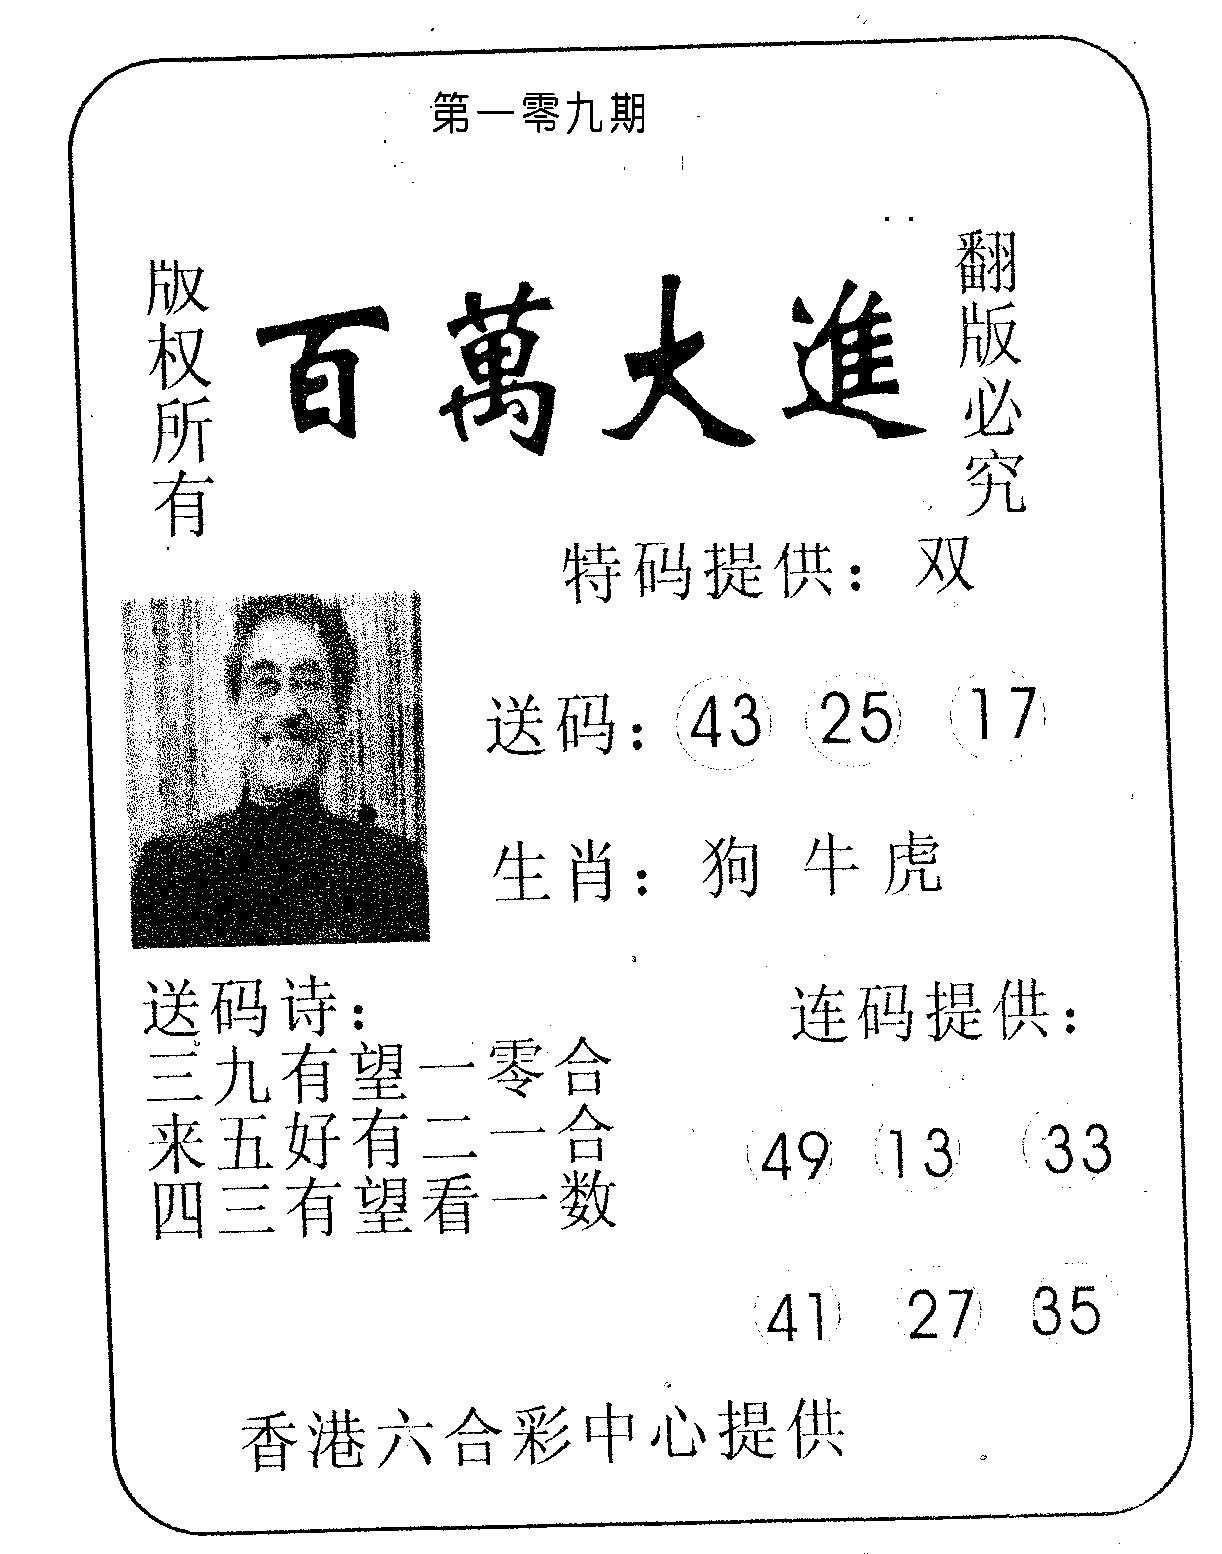 第一零九期
版权所有
百萬大進
翻版必究
特码提供：双
送码：43 25 17
生肖：狗 牛 虎
送码诗：
三九有望一零合
来五好有二一合
四三有望看一数
连码提供：
49 13 33
41 27 35
香港六合彩中心提供